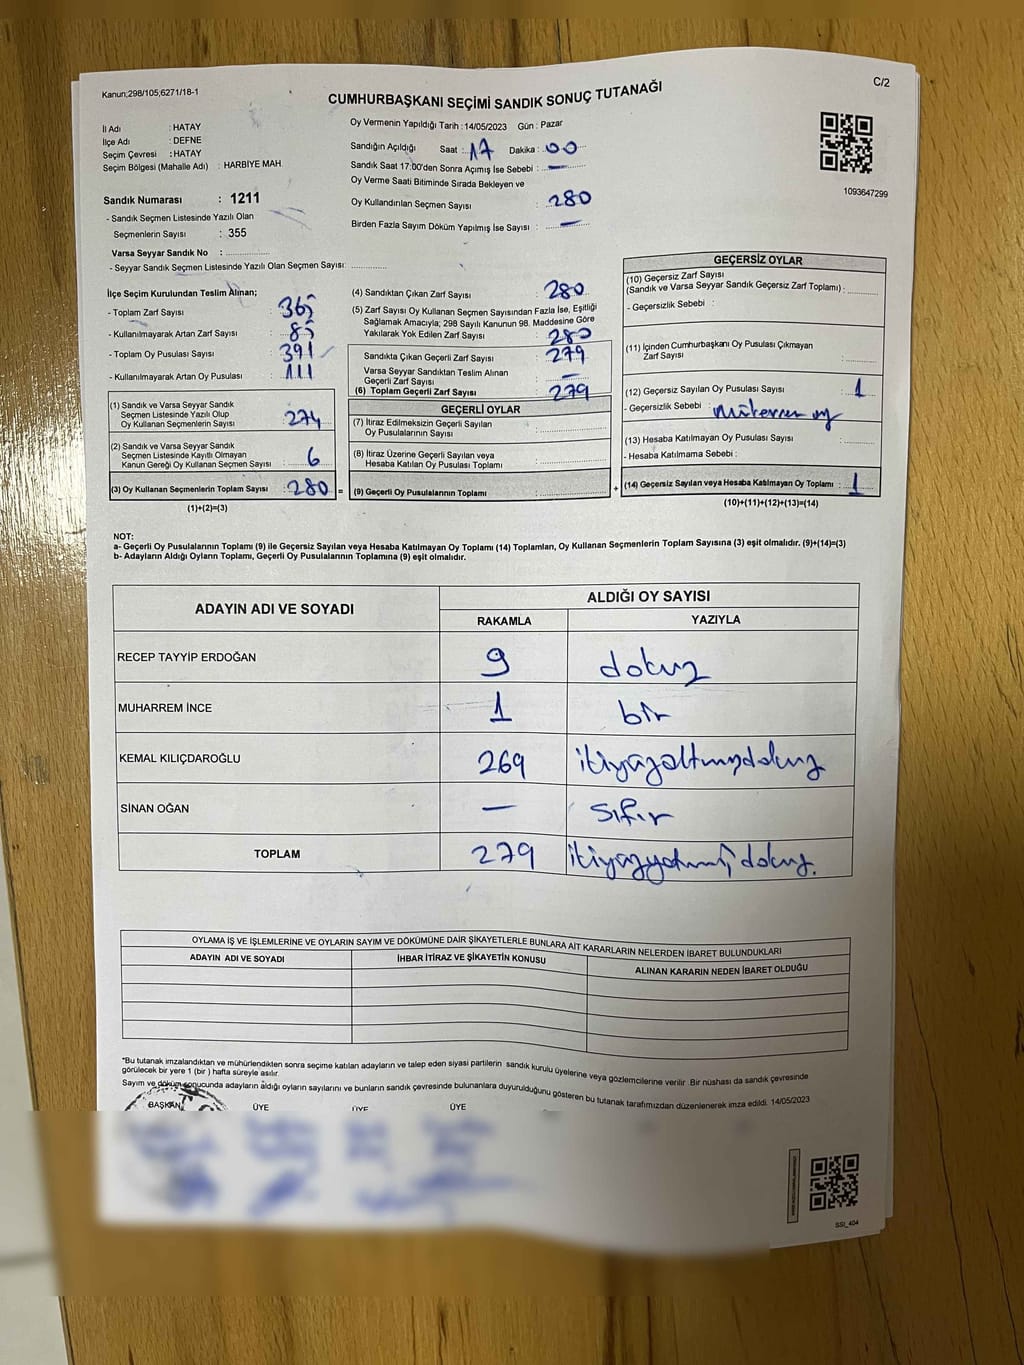 Kanun;298/105;6271/18-1
C/2
CUMHURBAŞKANI SEÇİMİ SANDIK SONUÇ TUTANAĞI
İl Adı : HATAY
İlçe Adı : DEFNE
Seçim Çevresi : HATAY
Seçim Bölgesi (Mahalle Adı) : HARBİYE MAH.
Oy Vermenin Yapıldığı Tarih :14/05/2023 Gün : Pazar
Sandığın Açıldığı Saat : 17 Dakika : 00
Sandık Saat 17:00'den Sonra Açımış İse Sebebi : —
Oy Verme Saati Bitiminde Sırada Bekleyen ve
Oy Kullandırılan Seçmen Sayısı : 280
Birden Fazla Sayım Döküm Yapılmış İse Sayısı : —
1093647299
Sandık Numarası : 1211
- Sandık Seçmen Listesinde Yazılı Olan
Seçmenlerin Sayısı : 355
Varsa Seyyar Sandık No :
- Seyyar Sandık Seçmen Listesinde Yazılı Olan Seçmen Sayısı:
İlçe Seçim Kurulundan Teslim Alınan;
- Toplam Zarf Sayısı 365
- Kullanılmayarak Artan Zarf Sayısı : 85
- Toplam Oy Pusulası Sayısı 391
- Kullanılmayarak Artan Oy Pusulası : 111
(1) Sandık ve Varsa Seyyar Sandık
Seçmen Listesinde Yazılı Olup
Oy Kullanan Seçmenlerin Sayısı : 274
(2) Sandık ve Varsa Seyyar Sandık
Seçmen Listesinde Kayıtlı Olmayan
Kanun Gereği Oy Kullanan Seçmen Sayısı : 6
(3) Oy Kullanan Seçmenlerin Toplam Sayısı : 280 =
(1)+(2)=(3)
(4) Sandıktan Çıkan Zarf Sayısı : 280
(5) Zarf Sayısı Oy Kullanan Seçmen Sayısından Fazla İse, Eşitliği
Sağlamak Amacıyla; 298 Sayılı Kanunun 98. Maddesine Göre
Yakılarak Yok Edilen Zarf Sayısı : 280
Sandıkta Çıkan Geçerli Zarf Sayısı : 279
Varsa Seyyar Sandıktan Teslim Alınan
Geçerli Zarf Sayısı : —
(6) Toplam Geçerli Zarf Sayısı : 279
GEÇERLİ OYLAR
(7) İtiraz Edilmeksizin Geçerli Sayılan
Oy Pusulalarının Sayısı :
(8) İtiraz Üzerine Geçerli Sayılan veya
Hesaba Katılan Oy Pusulası Toplamı :
(9) Geçerli Oy Pusulalarının Toplamı : +
GEÇERSİZ OYLAR
(10) Geçersiz Zarf Sayısı
(Sandık ve Varsa Seyyar Sandık Geçersiz Zarf Toplamı) :
- Geçersizlik Sebebi :
(11) İçinden Cumhurbaşkanı Oy Pusulası Çıkmayan
Zarf Sayısı :
(12) Geçersiz Sayılan Oy Pusulası Sayısı : 1
- Geçersizlik Sebebi : Mükerrer oy
(13) Hesaba Katılmayan Oy Pusulası Sayısı :
- Hesaba Katılmama Sebebi :
(14) Geçersiz Sayılan veya Hesaba Katılmayan Oy Toplamı : 1
(10)+(11)+(12)+(13)=(14)
NOT:
a- Geçerli Oy Pusulalarının Toplamı (9) ile Geçersiz Sayılan veya Hesaba Katılmayan Oy Toplamı (14) Toplamları, Oy Kullanan Seçmenlerin Toplam Sayısına (3) eşit olmalıdır. (9)+(14)=(3)
b- Adayların Aldığı Oyların Toplamı, Geçerli Oy Pusulalarının Toplamına (9) eşit olmalıdır.
ADAYIN ADI VE SOYADI ALDIĞI OY SAYISI
RAKAMLA YAZIYLA
RECEP TAYYİP ERDOĞAN 9 dokuz
MUHARREM İNCE 1 bir
KEMAL KILIÇDAROĞLU 269 ikiyüzaltmışdokuz
SİNAN OĞAN — sıfır
TOPLAM 279 ikiyüzyetmişdokuz.
OYLAMA İŞ VE İŞLEMLERİNE VE OYLARIN SAYIM VE DÖKÜMÜNE DAİR ŞİKAYETLERLE BUNLARA AİT KARARLARIN NELERDEN İBARET BULUNDUKLARI
ADAYIN ADI VE SOYADI İHBAR İTİRAZ VE ŞİKAYETİN KONUSU ALINAN KARARIN NEDEN İBARET OLDUĞU
*Bu tutanak imzalandıktan ve mühürlendikten sonra seçime katılan adayların ve talep eden siyasi partilerin sandık kurulu üyelerine veya gözlemcilerine verilir. Bir nüshası da sandık çevresinde
görülecek bir yere 1 (bir ) hafta süreyle asılır.
Sayım ve döküm sonucunda adayların aldığı oyların sayılarını ve bunların sandık çevresinde bulunanlara duyurulduğunu gösteren bu tutanak tarafımızdan düzenlenerek imza edildi. 14/05/2023
BAŞKAN ÜYE ÜYE ÜYE
SSI_404